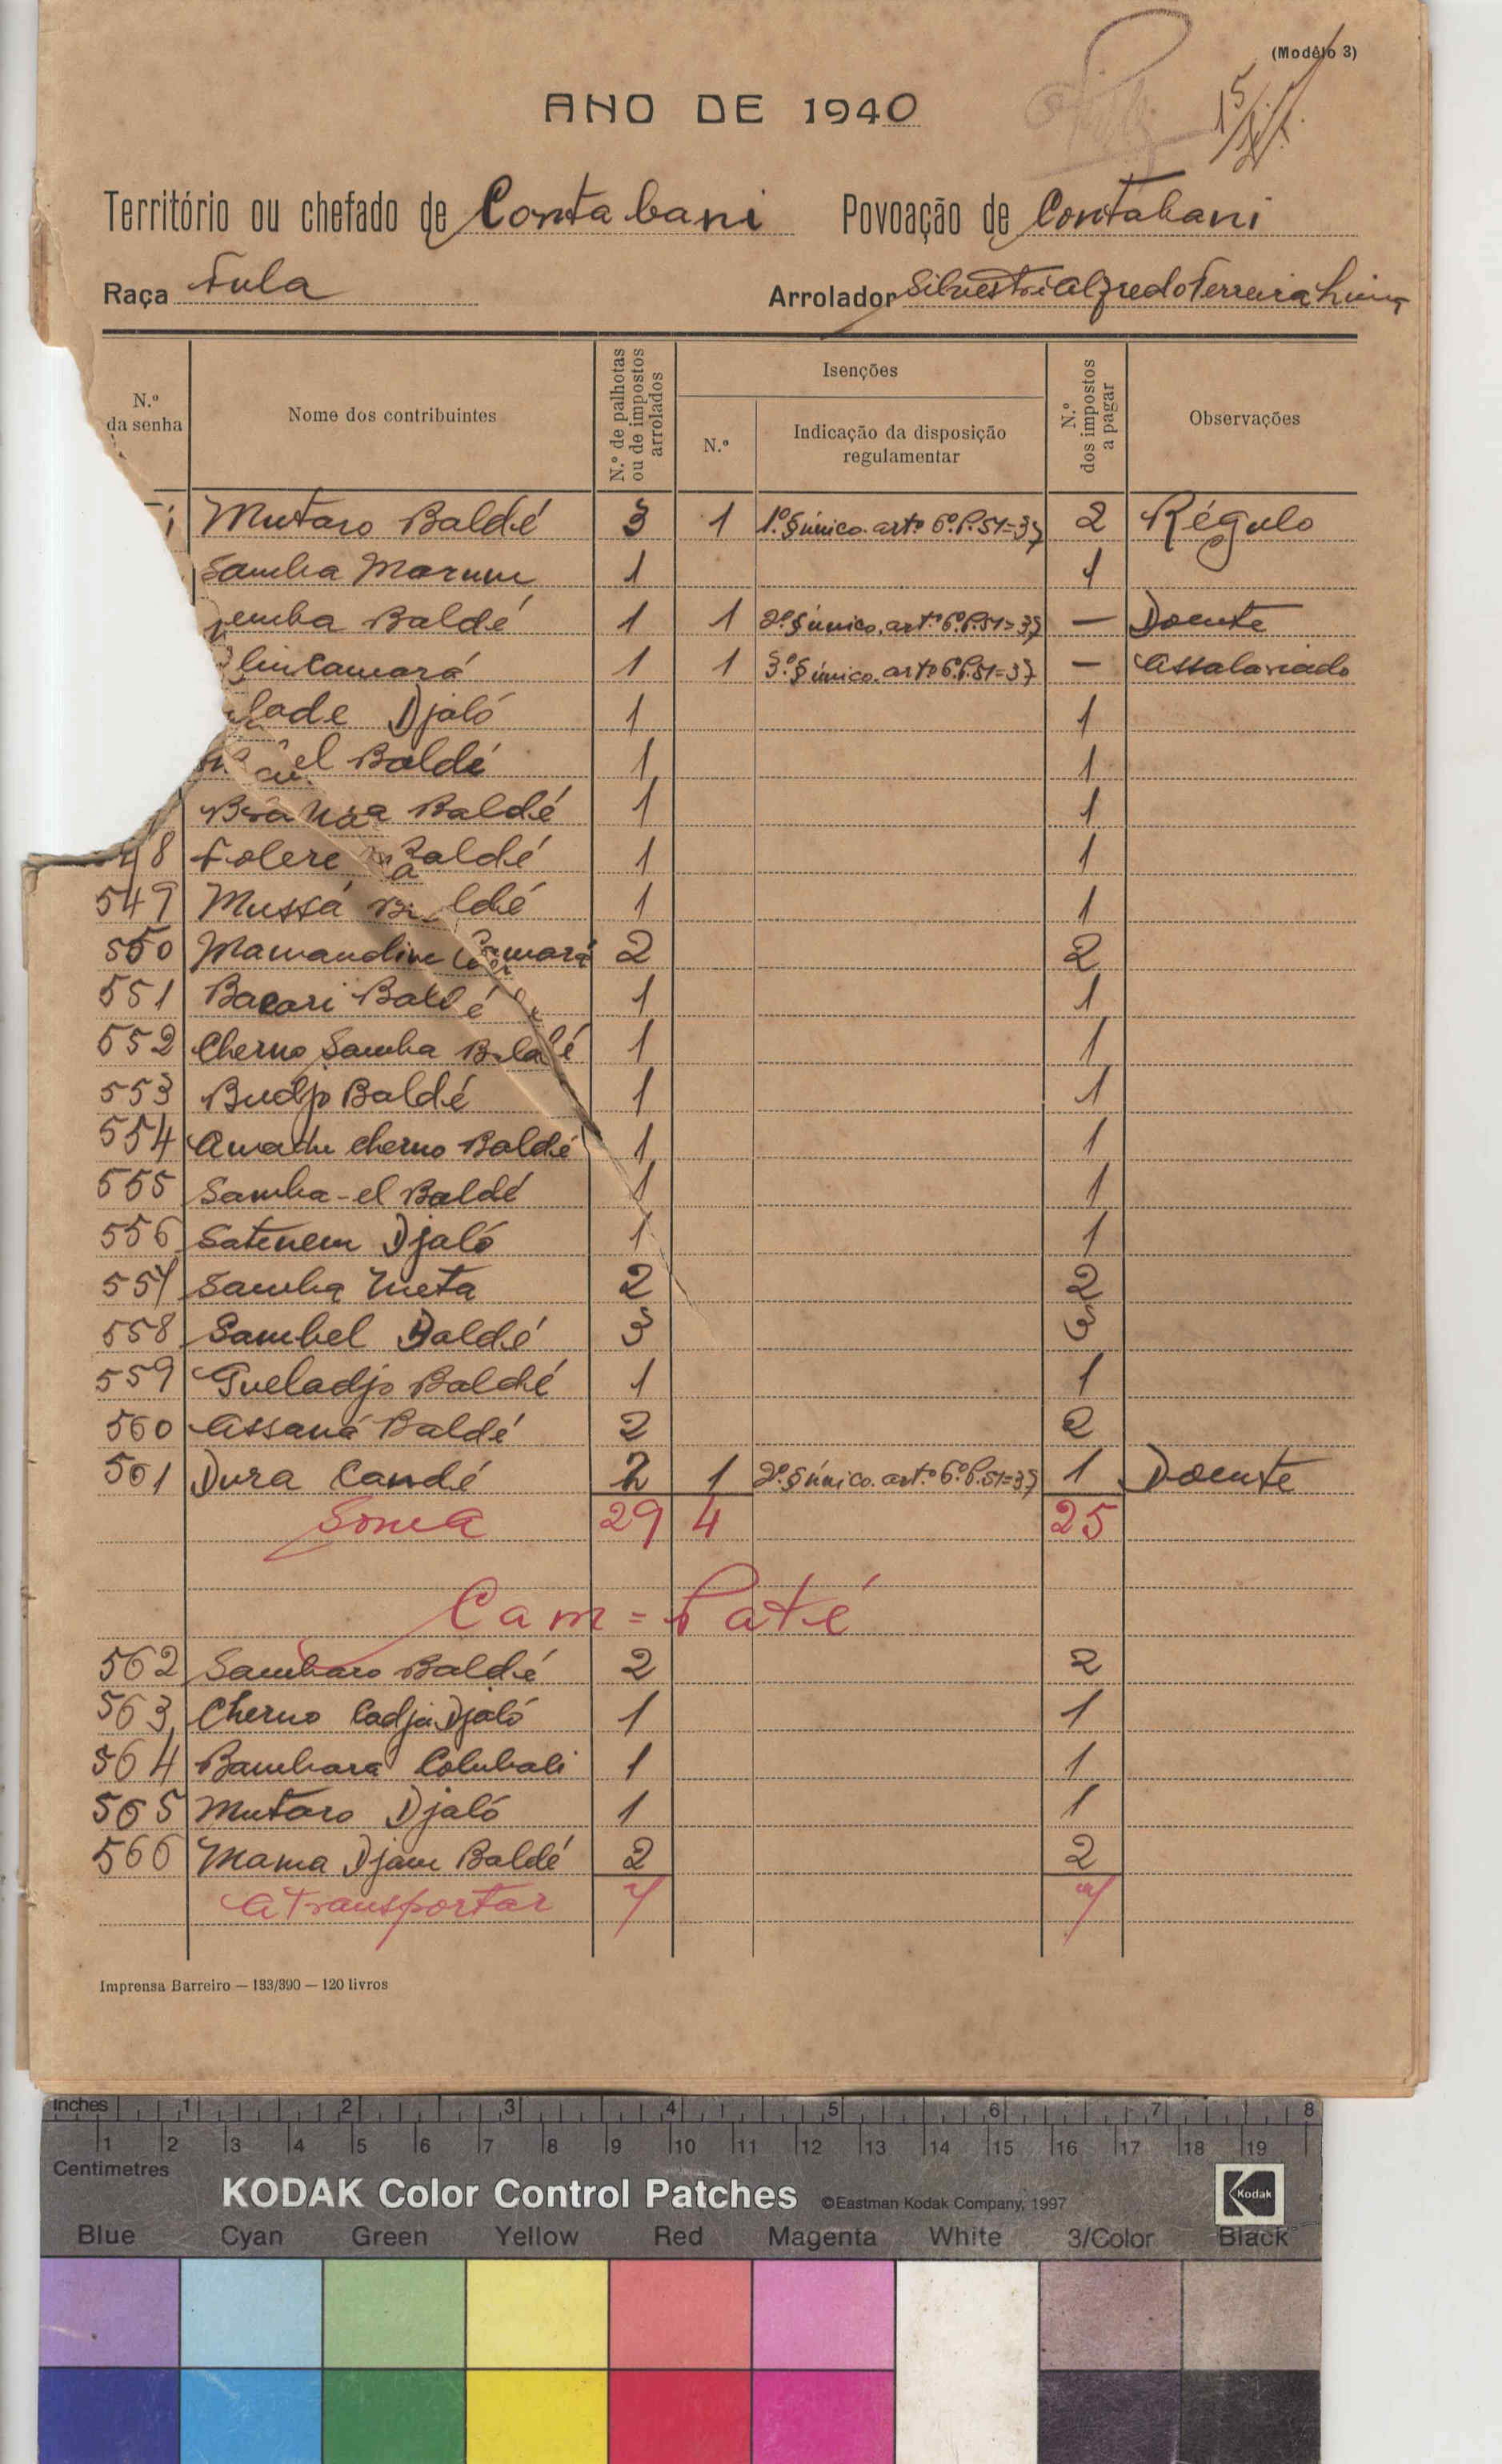 (Modêlo 3)
15/
ANO DE 1940
Território ou chefado de Contabani Povoação de Contabani
Raça Fula Arrolador Silvestre Alfredo Ferreira
N.º da senha
Nome dos contribuintes
N.º de palhotas ou de impostos arrolados
Isenções
N.º
Indicação da disposição regulamentar
N.º dos impostos a pagar
Observações
Mutaro Baldé 3 1 1º. § único. artº 6º. P. 51=37 2 Régulo
Samba 1 1
Baldé 1 1 2º. § único. artº 6º. P. 51=37 — Doente
camará 1 1 3º. § único. artº 6º. P. 51=37 — Assalariado
lade Djaló 1 1
el Baldé 1 1
Baldé 1 1
48 Folere Baldé 1 1
549 Mussá Baldé 1 1
550 Mamandim Camará 2 2
551 Bacari Baldé 1 1
552 Cherno Samba Baldé 1 1
553 Budjo Baldé 1 1
554 Amadu Cherno Baldé 1 1
555 Samba-el Baldé 1 1
556 Satenem Djaló 1 1
557 Samba 2 2
558 Sambel Baldé 3 3
559 Gueladjo Baldé 1 1
560 Assaná Baldé 2 2
561 Dura Candé 2 1 2º. § único. artº 6º. P. 51=37 1 Doente
Soma 29 4 25
Cam=Paté
562 Sambaro Baldé 2 2
563 Cherno Cadja Djaló 1 1
564 Bambara Colubali 1 1
565 Mutaro Djaló 1 1
566 Mama Djam Baldé 2 2
A transportar 7 7
Imprensa Barreiro — 133/390 — 120 livros
Inches 1 2 3 4 5 6 7 8
1 2 3 4 5 6 7 8 9 10 11 12 13 14 15 16 17 18 19
Centimetres
KODAK Color Control Patches ©Eastman Kodak Company, 1997 Kodak
Blue Cyan Green Yellow Red Magenta White 3/Color Black